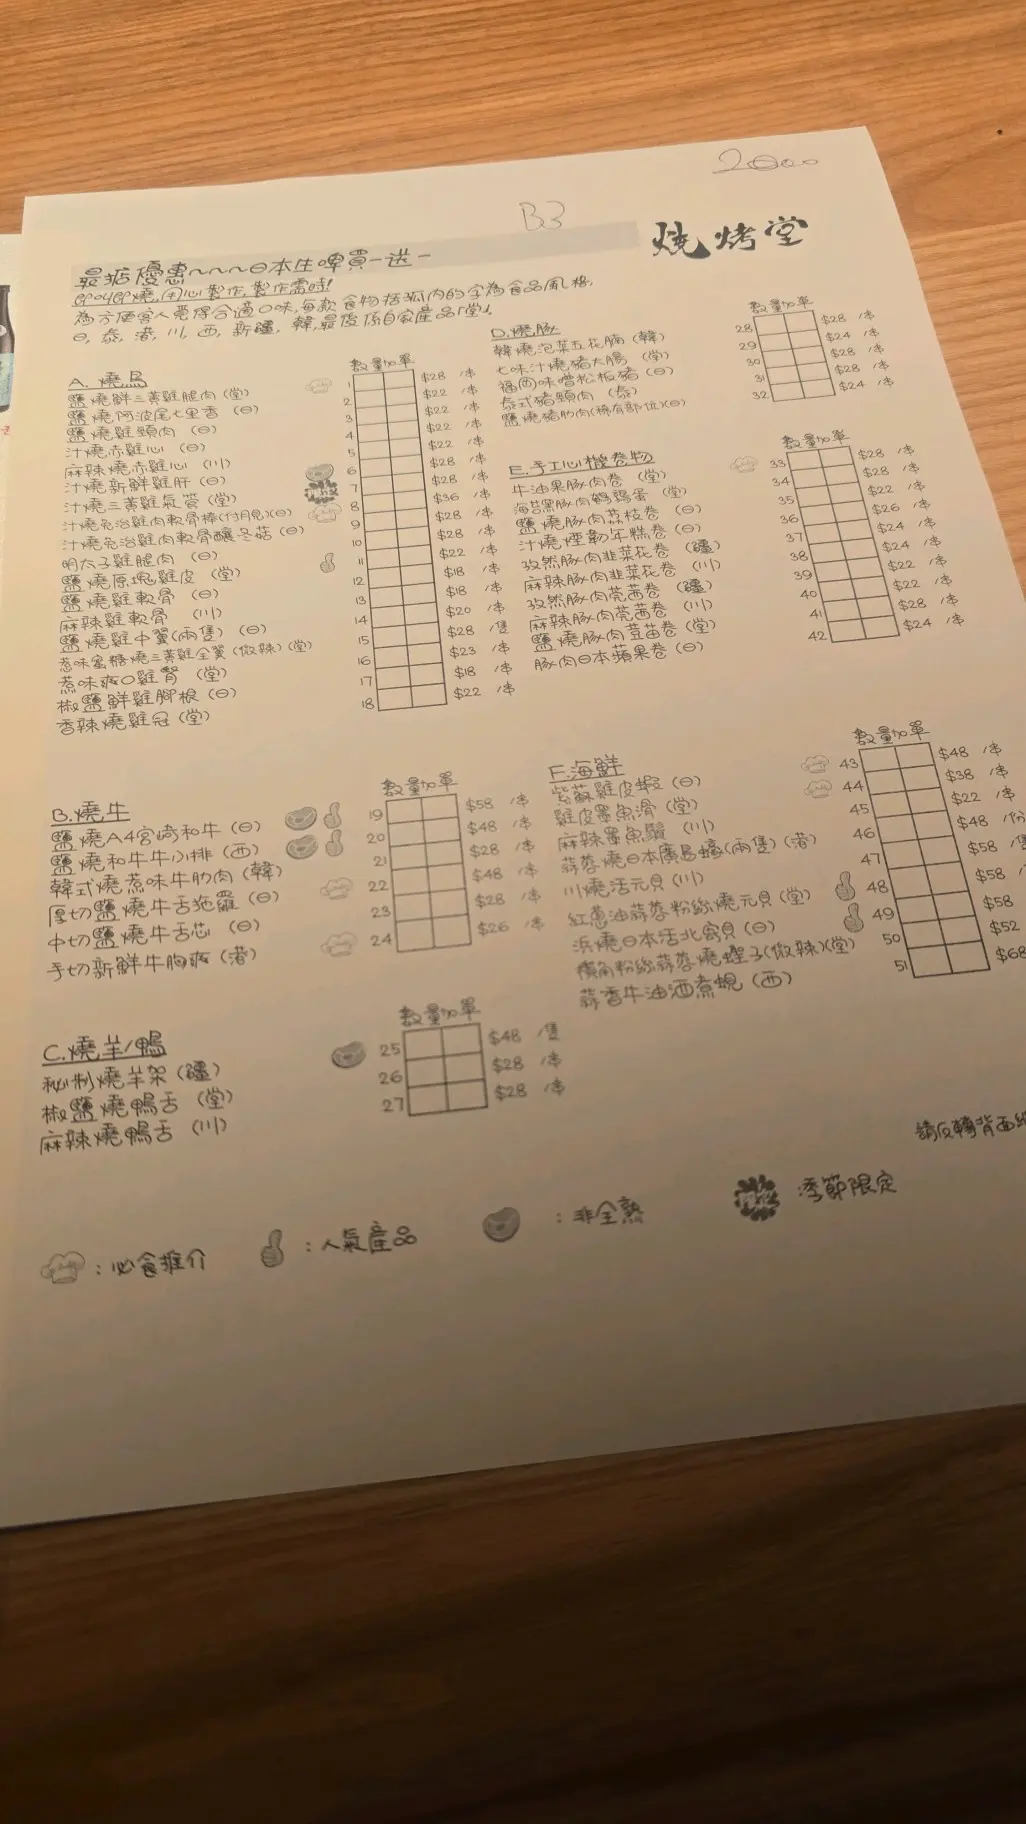 2000
B3
燒烤堂
最掂優惠~~~日本生啤買一送一
即叫即燒,用心製作,製作需時!
為方便客人覓得合適口味,每款食物括弧內的字為食品風格,
日, 泰, 港, 川, 西, 新疆, 韓,最後係自家產品「堂」。
A. 燒鳥
數量加單
鹽燒鮮三黃雞腿肉 (堂) 1 $28 /串
鹽燒阿波尾七里香 (日) 2 $22 /串
鹽燒雞頸肉 (日) 3 $22 /串
汁燒赤雞心 (日) 4 $22 /串
麻辣燒赤雞心 (川) 5 $22 /串
汁燒新鮮雞肝 (日) 6 $28 /串
汁燒三黃雞氣管 (堂) 7 $28 /串
汁燒免治雞肉軟骨棒(付月見)(日) 8 $36 /串
汁燒免治雞肉軟骨釀冬菇 (日) 9 $28 /串
明太子雞腿肉 (日) 10 $28 /串
鹽燒原塊雞皮 (堂) 11 $22 /串
鹽燒雞軟骨 (日) 12 $18 /串
麻辣雞軟骨 (川) 13 $18 /串
鹽燒雞中翼(兩隻) (日) 14 $20 /串
惹味蜜糖燒三黃雞全翼 (微辣) (堂) 15 $28 /隻
惹味爽口雞腎 (堂) 16 $23 /串
椒鹽鮮雞腳根 (日) 17 $18 /串
香辣燒雞冠 (堂) 18 $22 /串
B.燒牛
數量加單
鹽燒A4宮崎和牛 (日) 19 $58 /串
鹽燒和牛牛小排 (西) 20 $48 /串
韓式燒惹味牛肋肉 (韓) 21 $28 /串
厚切鹽燒牛舌拖羅 (日) 22 $48 /串
中切鹽燒牛舌芯 (日) 23 $28 /串
手切新鮮牛胸爽 (港) 24 $26 /串
C.燒羊/鴨
數量加單
秘制燒羊架 (疆) 25 $48 /隻
椒鹽燒鴨舌 (堂) 26 $28 /串
麻辣燒鴨舌 (川) 27 $28 /串
D.燒豚
數量加單
韓燒泡菜五花腩 (韓) 28 $28 /串
七味汁燒豬大腸 (堂) 29 $24 /串
福岡味噌松板豬 (日) 30 $28 /串
泰式豬頸肉 (泰) 31 $28 /串
鹽燒豬肋肉(稀有部位)(日) 32 $24 /串
E.手工心機卷物
數量加單
牛油果豚肉卷 (堂) 33 $28 /串
海苔黑豚肉鵪鶉蛋 (堂) 34 $28 /串
鹽燒豚肉荔枝卷 (日) 35 $22 /串
汁燒煙韌年糕卷 (日) 36 $26 /串
孜然豚肉韭菜花卷 (疆) 37 $24 /串
麻辣豚肉韭菜花卷 (川) 38 $24 /串
孜然豚肉芫茜卷 (疆) 39 $22 /串
麻辣豚肉芫茜卷 (川) 40 $22 /串
鹽燒豚肉荳苗卷 (堂) 41 $28 /串
豚肉日本蘋果卷 (日) 42 $24 /串
F.海鮮
數量加單
紫蘇雞皮蝦 (日) 43 $48 /串
雞皮墨魚滑 (堂) 44 $38 /串
麻辣墨魚鬚 (川) 45 $22 /串
蒜蓉燒日本廣島蠔(兩隻) (港) 46 $48 /份
川燒活元貝 (川) 47 $58 /隻
紅蔥油蒜蓉粉絲燒元貝 (堂) 48 $58 /
浜燒日本活北寄貝 (日) 49 $58
橫角粉絲蒜蓉燒蟶子(微辣)(堂) 50 $52
蒜香牛油酒煮蜆 (西) 51 $68
請反轉背面
:必食推介
:人氣產品
:非全熟
季節限定